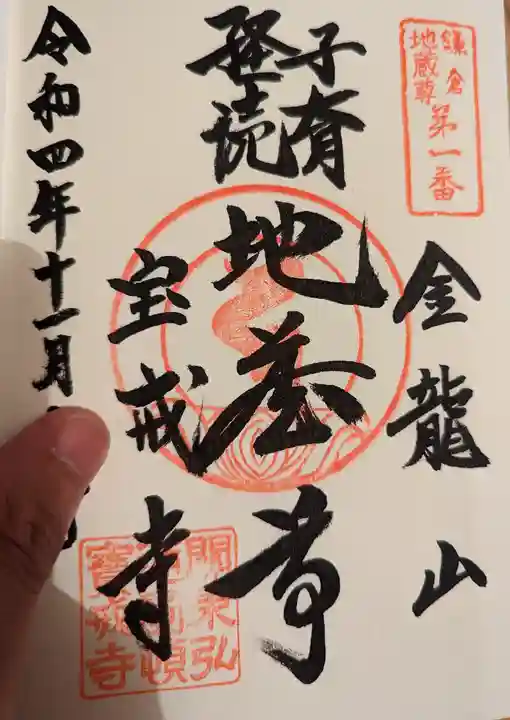 鎌倉
地蔵尊
第一番
金龍山
子育
経読
地蔵尊
宝戒寺
令和四年十一月
寶戒寺